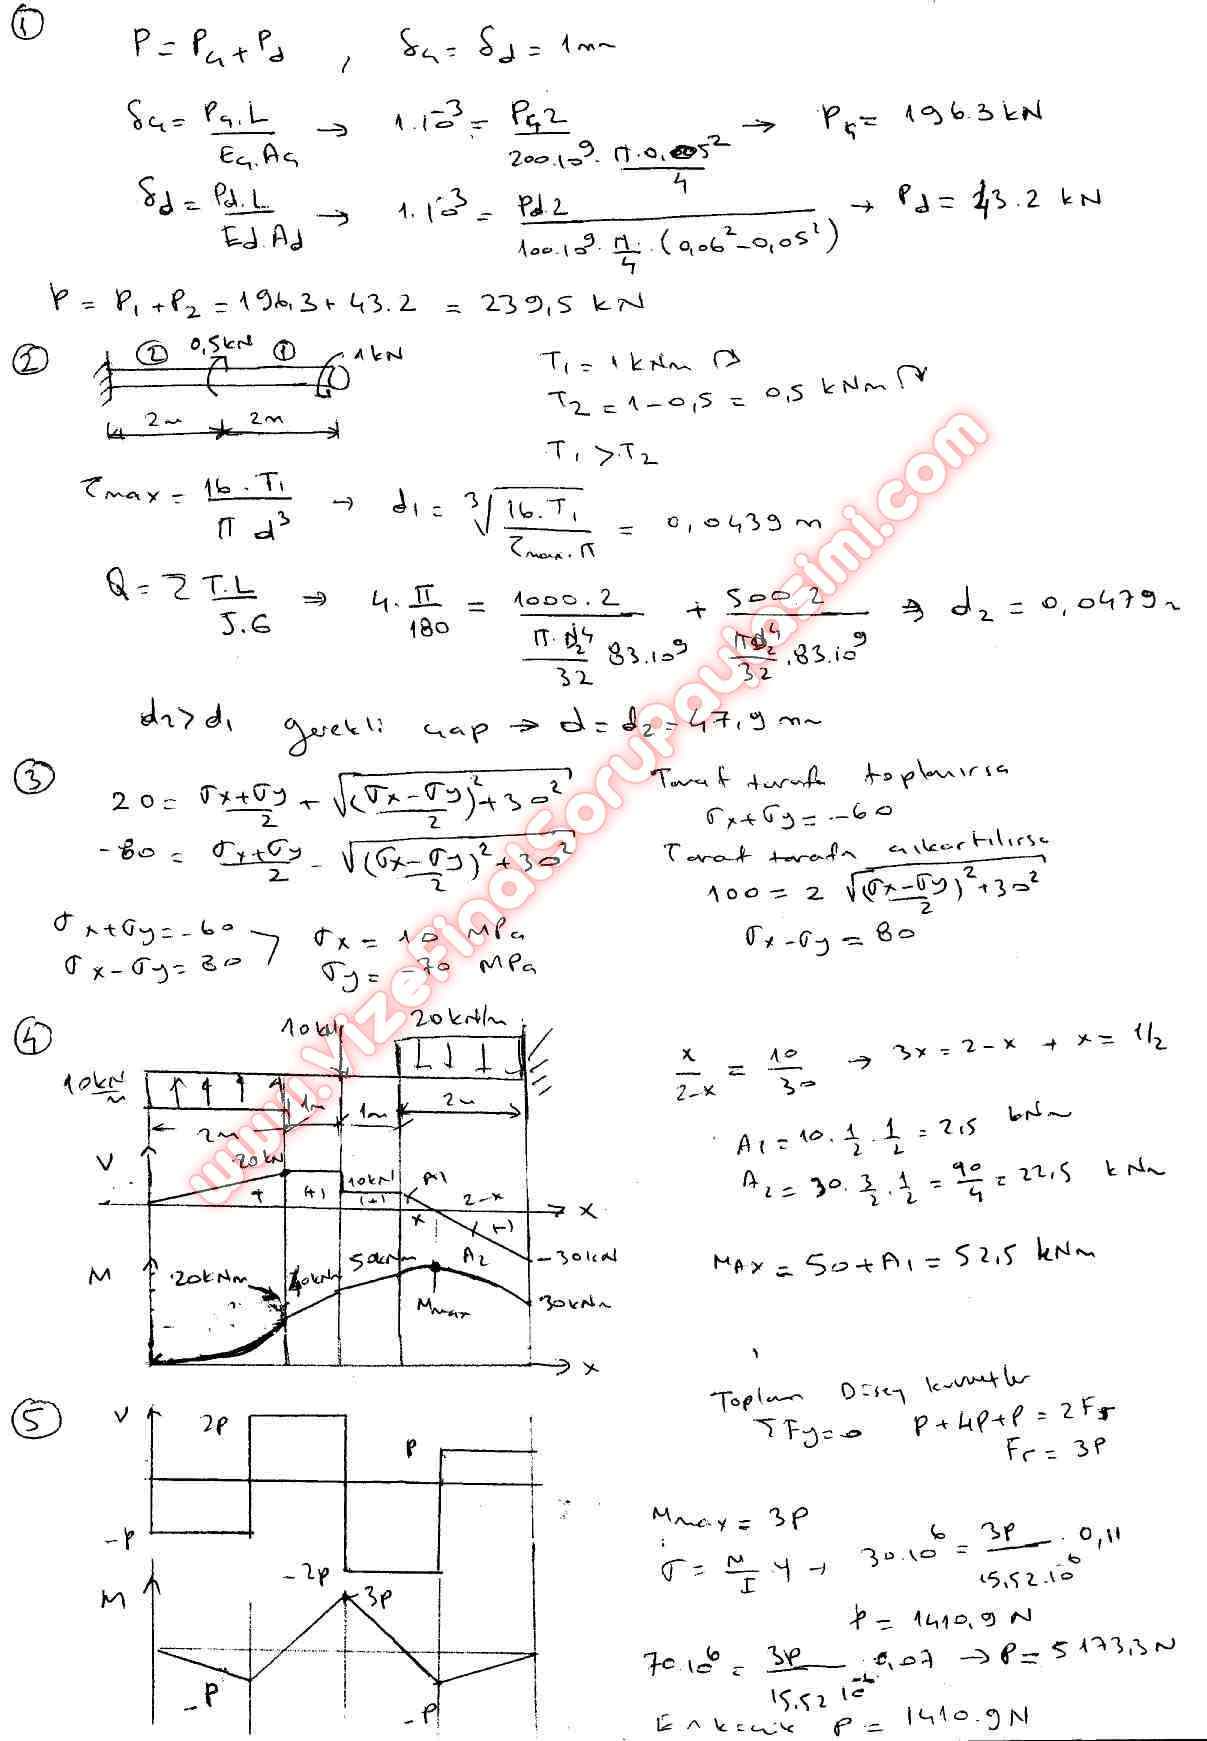 ①
P = Pç + Pd , δç = δd = 1mm
δç = Pç.L / Eç.Aç → 1.10^-3 = Pç2 / 200.10^9. π.0,05^2/4 → Pç = 196.3 kN
δd = Pd.L / Ed.Ad → 1.10^-3 = Pd.2 / 100.10^9. π/4 .(0,06^2-0,05^2) → Pd = 43.2 kN
P = P1 + P2 = 196,3 + 43.2 = 239,5 kN
② ② 0,5kN ① 1kN
2m 2m
T1 = 1 kNm
T2 = 1-0,5 = 0,5 kNm
T1 > T2
τmax = 16.T1 / π d^3 → d1 = ∛(16.T1 / τmax.π) = 0,0439 m
Q = Σ T.L / J.G ⇒ 4. π/180 = 1000.2 / (π.d2^4/32 83.10^9) + 500.2 / (πd2^4/32 .83.10^9) ⇒ d2 = 0,0479m
d2>d1 gerekli çap ⇒ d = d2 = 47,9 mm
③ 20 = σx+σy/2 + √((σx-σy/2)^2+30^2)
-80 = σx+σy/2 - √((σx-σy/2)^2+30^2)
Taraf tarafa toplanırsa
σx+σy = -60
Taraf tarafa çıkartılırsa
100 = 2 √((σx-σy/2)^2+30^2)
σx-σy = 80
σx+σy = -60
σx-σy = 80
σx = 10 MPa
σy = -70 MPa
④ 10kN 20kN/m
10kN/m
2m 1m 1m 2m
V 20kN 10kN A1 2-x
+ (+) (+) x (-) x
-30kN
M 20kNm 40kNm 50kNm A2
Mmax 30kNm
x
x/2-x = 10/30 → 3x = 2-x → x = 1/2
A1 = 10. 1/2 . 1/2 = 2,5 kNm
A2 = 30. 3/2 . 1/2 = 90/4 = 22,5 kNm
MAX = 50+A1 = 52,5 kNm
⑤ V 2P P
-P
-2P
M 3P
-P -P
Toplam Düşey kuvvetler
ΣFy=0 P+4P+P = 2Fr
Fr = 3P
Mmax = 3P
σ = M/I .y → 30.10^6 = 3P/15,52.10^-6 . 0,11
P = 1410,9 N
70.10^6 = 3P/15,52 10^-6 . 0,07 → P = 5173,3 N
En küçük P = 1410.9 N
www.VizeFinalSoruPaylasimi.com